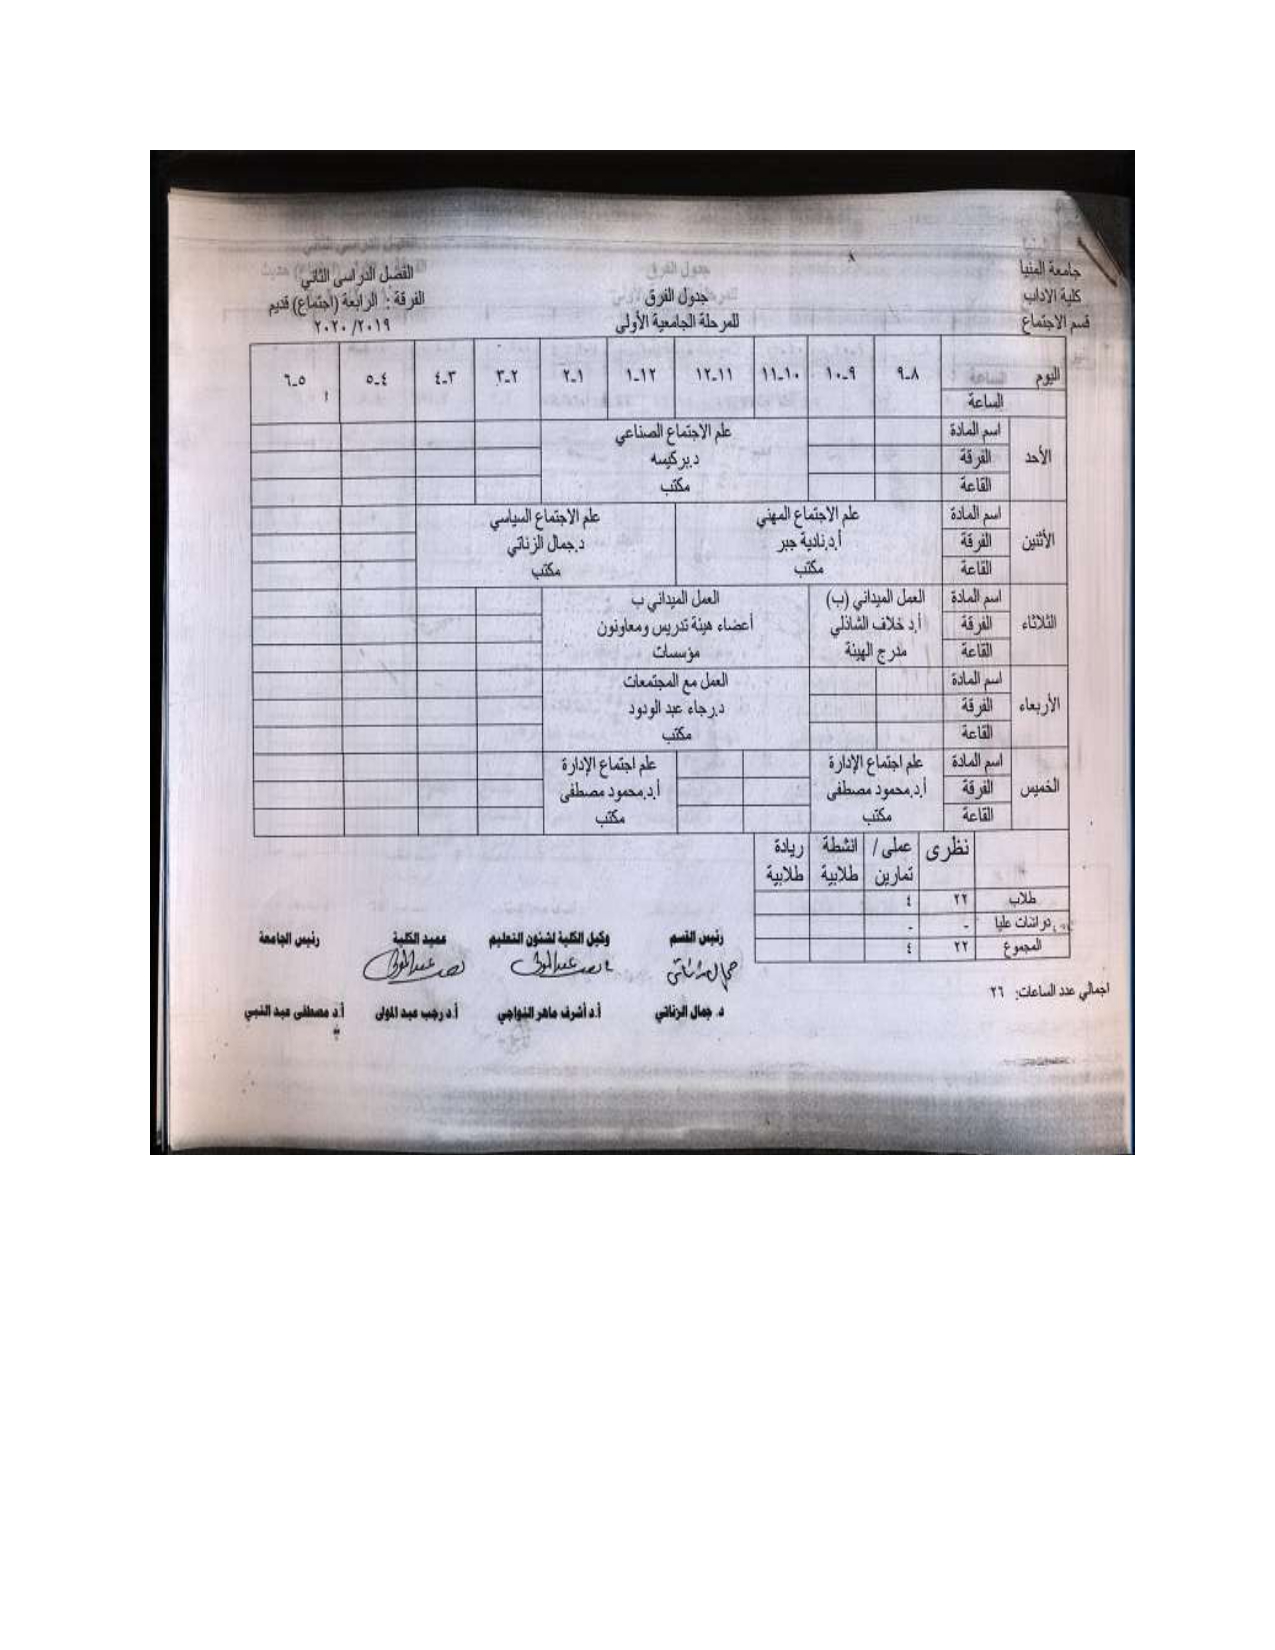 جامعة المنيا
كلية الاداب
قسم الاجتماع
جدول الفرق
للمرحلة الجامعية الأولى
الفصل الدراسى الثاني
الفرقة : الرابعة (اجتماع) قديم
٢٠١٩/ ٢٠٢٠
اليوم ٨-٩ ٩-١٠ ١٠-١١ ١١-١٢ ١٢-١ ١-٢ ٢-٣ ٣-٤ ٤-٥ ٥-٦
الساعة
الأحد
اسم المادة علم الاجتماع الصناعي
الفرقة د.بركيسه
القاعة مكتب
الأثنين
اسم المادة علم الاجتماع المهني علم الاجتماع السياسي
الفرقة أ.د.نادية جبر د.جمال الزناتي
القاعة مكتب مكتب
الثلاثاء
اسم المادة العمل الميداني (ب) العمل الميداني ب
الفرقة أ.د خلاف الشاذلي أعضاء هيئة تدريس ومعاونون
القاعة مدرج الهيئة مؤسسات
الأربعاء
اسم المادة العمل مع المجتمعات
الفرقة د.رجاء عبد الودود
القاعة مكتب
الخميس
اسم المادة علم اجتماع الإدارة علم اجتماع الإدارة
الفرقة أ.د.محمود مصطفى أ.د.محمود مصطفى
القاعة مكتب مكتب
نظرى عملى / تمارين انشطة طلابية ريادة طلابية
طلاب ٢٢ ٤
دراسات عليا - -
المجموع ٢٢ ٤
اجمالي عدد الساعات: ٢٦
رئيس القسم وكيل الكلية لشئون التعليم عميد الكلية رئيس الجامعة
د. جمال الزناتي أ.د أشرف ماهر النواجي أ.د رجب عبد المولى أ.د مصطفى عبد النبي